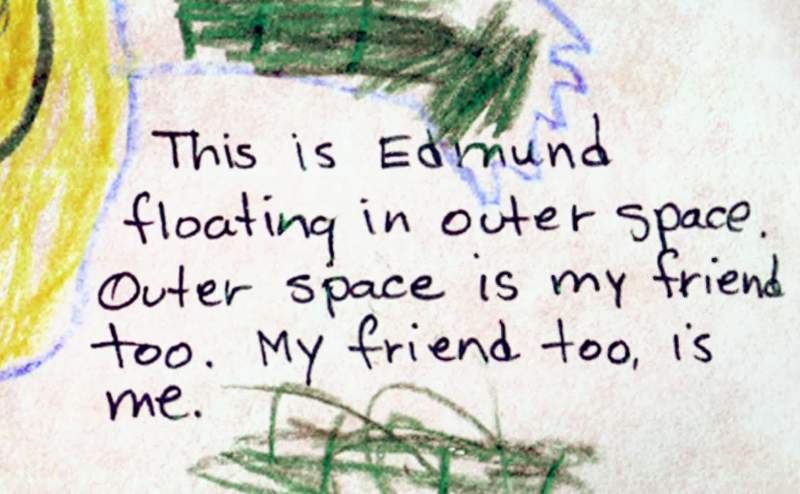 This is Edmund
floating in outer space.
Outer space is my friend
too. My friend too, is
me.